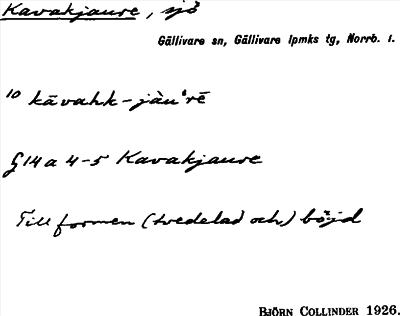 Kavakjaure, sjö
Gällivare sn, Gällivare lpmks tg, Norrb. l.
10 kāvahk-jàu'rē
§ 14 a 4-5 Kavakjaure
Till formen (tvedelad och) böjd
BJÖRN COLLINDER 1926.